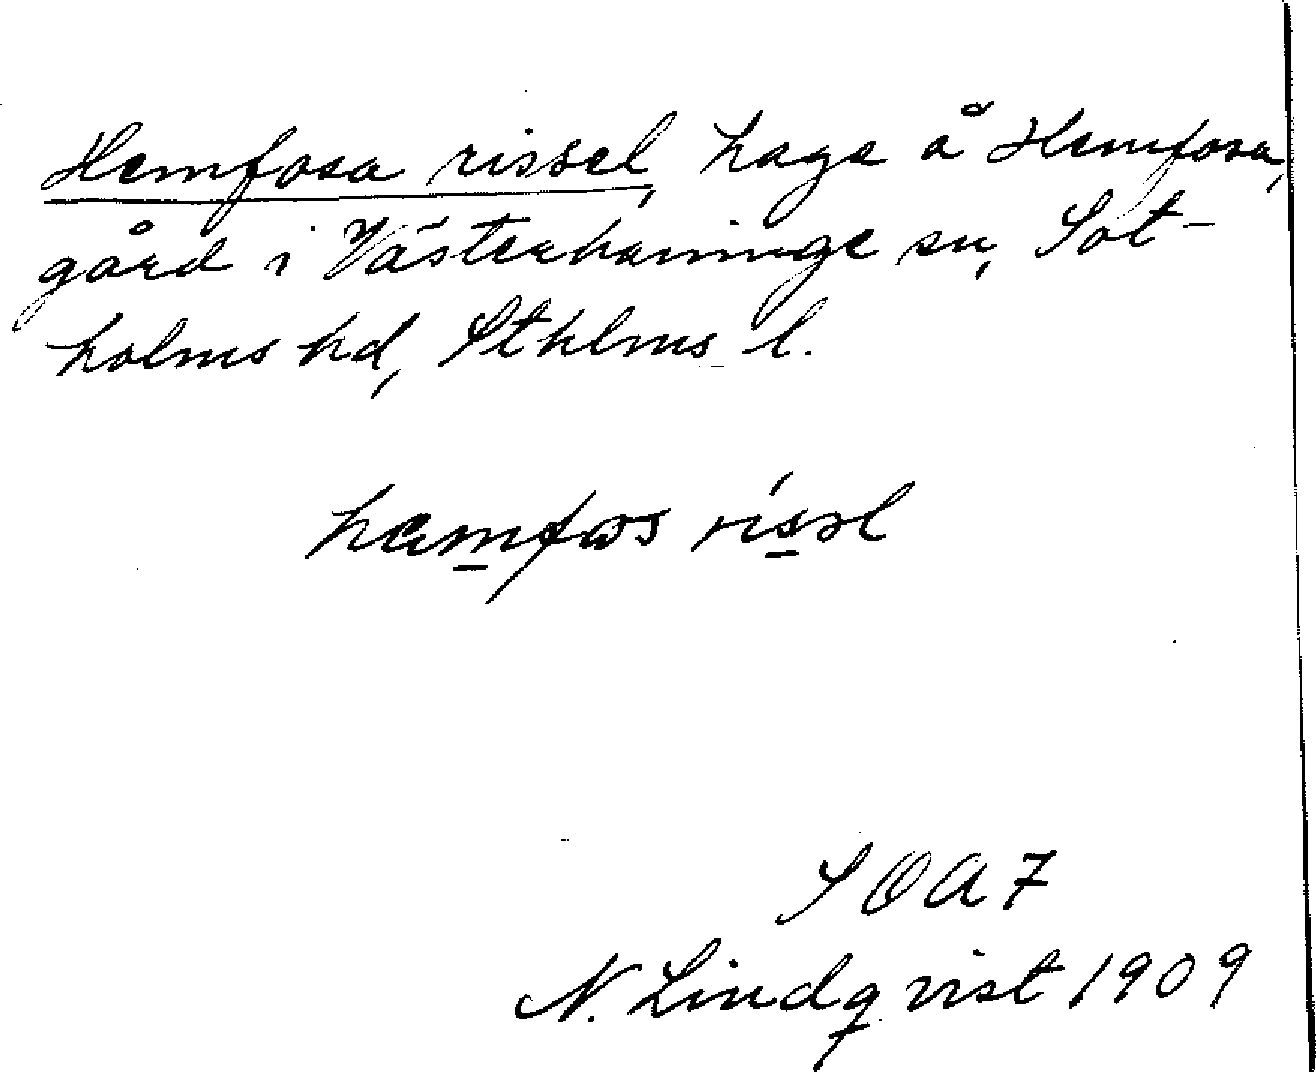 Hemfosa rissel, hage å Hemfosa,
gård i Västerhaninge sn, Sot-
holms hd, Sthlms l.
hæmfωs rissl
SOA 7
N. Lindqvist 1909